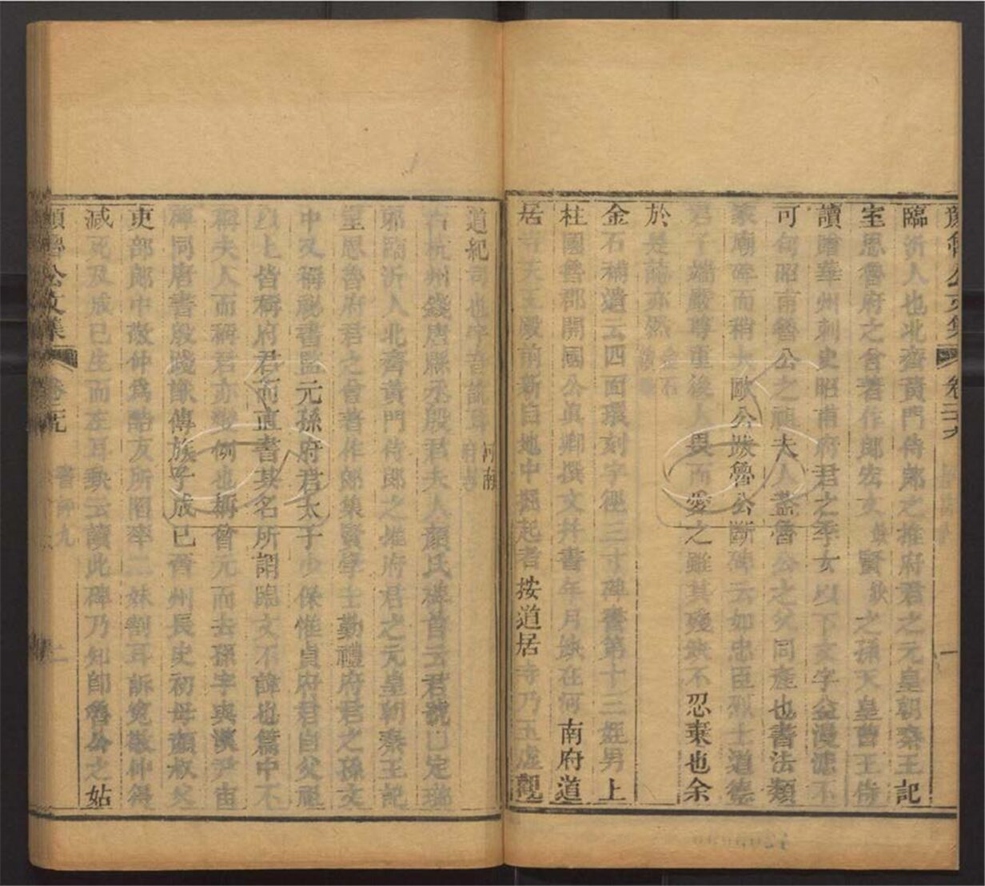 顏魯公文集 卷二十九 一
臨沂人也北齊黃門侍郎之推府君之元皇朝秦王記
室思魯府之曾著作郎宏文崇賢之孫天皇曹王侍
讀贈華州刺史昭甫府君之季女以下文字益漫漶不
可句昭甫魯公之祖夫人蓋魯公之父同產也書法類
家廟碑而稍大歐公跋魯公斷碑云如忠臣烈士道德
君子端嚴尊重使人畏而愛之雖其殘缺不忍棄也余
於是碑亦然
金石補遺云四面環刻字徑三寸碑書第十三姪男上
柱國魯郡開國公真卿撰文并書年月缺在河南府道
居寺天王殿前新自地中掘起者按道居寺乃玉虛觀
道紀司也字音訛耳河南府志
右杭州錢唐縣丞殷君夫人顏氏碑首云君諱□定瑯
邪臨沂人北齊黃門侍郎之推府君之元皇朝秦王記
室思魯府君之曾著作郎集賢學士勤禮府君之孫文
中又稱祕書監元孫府君太子少保惟貞府君自父祖
以上皆稱府君而直書其名所謂臨文不諱也篇中不
稱夫人而稱君亦變例也稱曾元而去孫字與漢尹宙
碑同唐書殷踐猷傳族子成己晉州長史初母顏叔父
吏部郎中敬仲爲酷吏所陷率二妹割耳訴冤敬仲得
減死及成己生而左耳缺云讀此碑乃知即魯公之姑
顏魯公文集 二